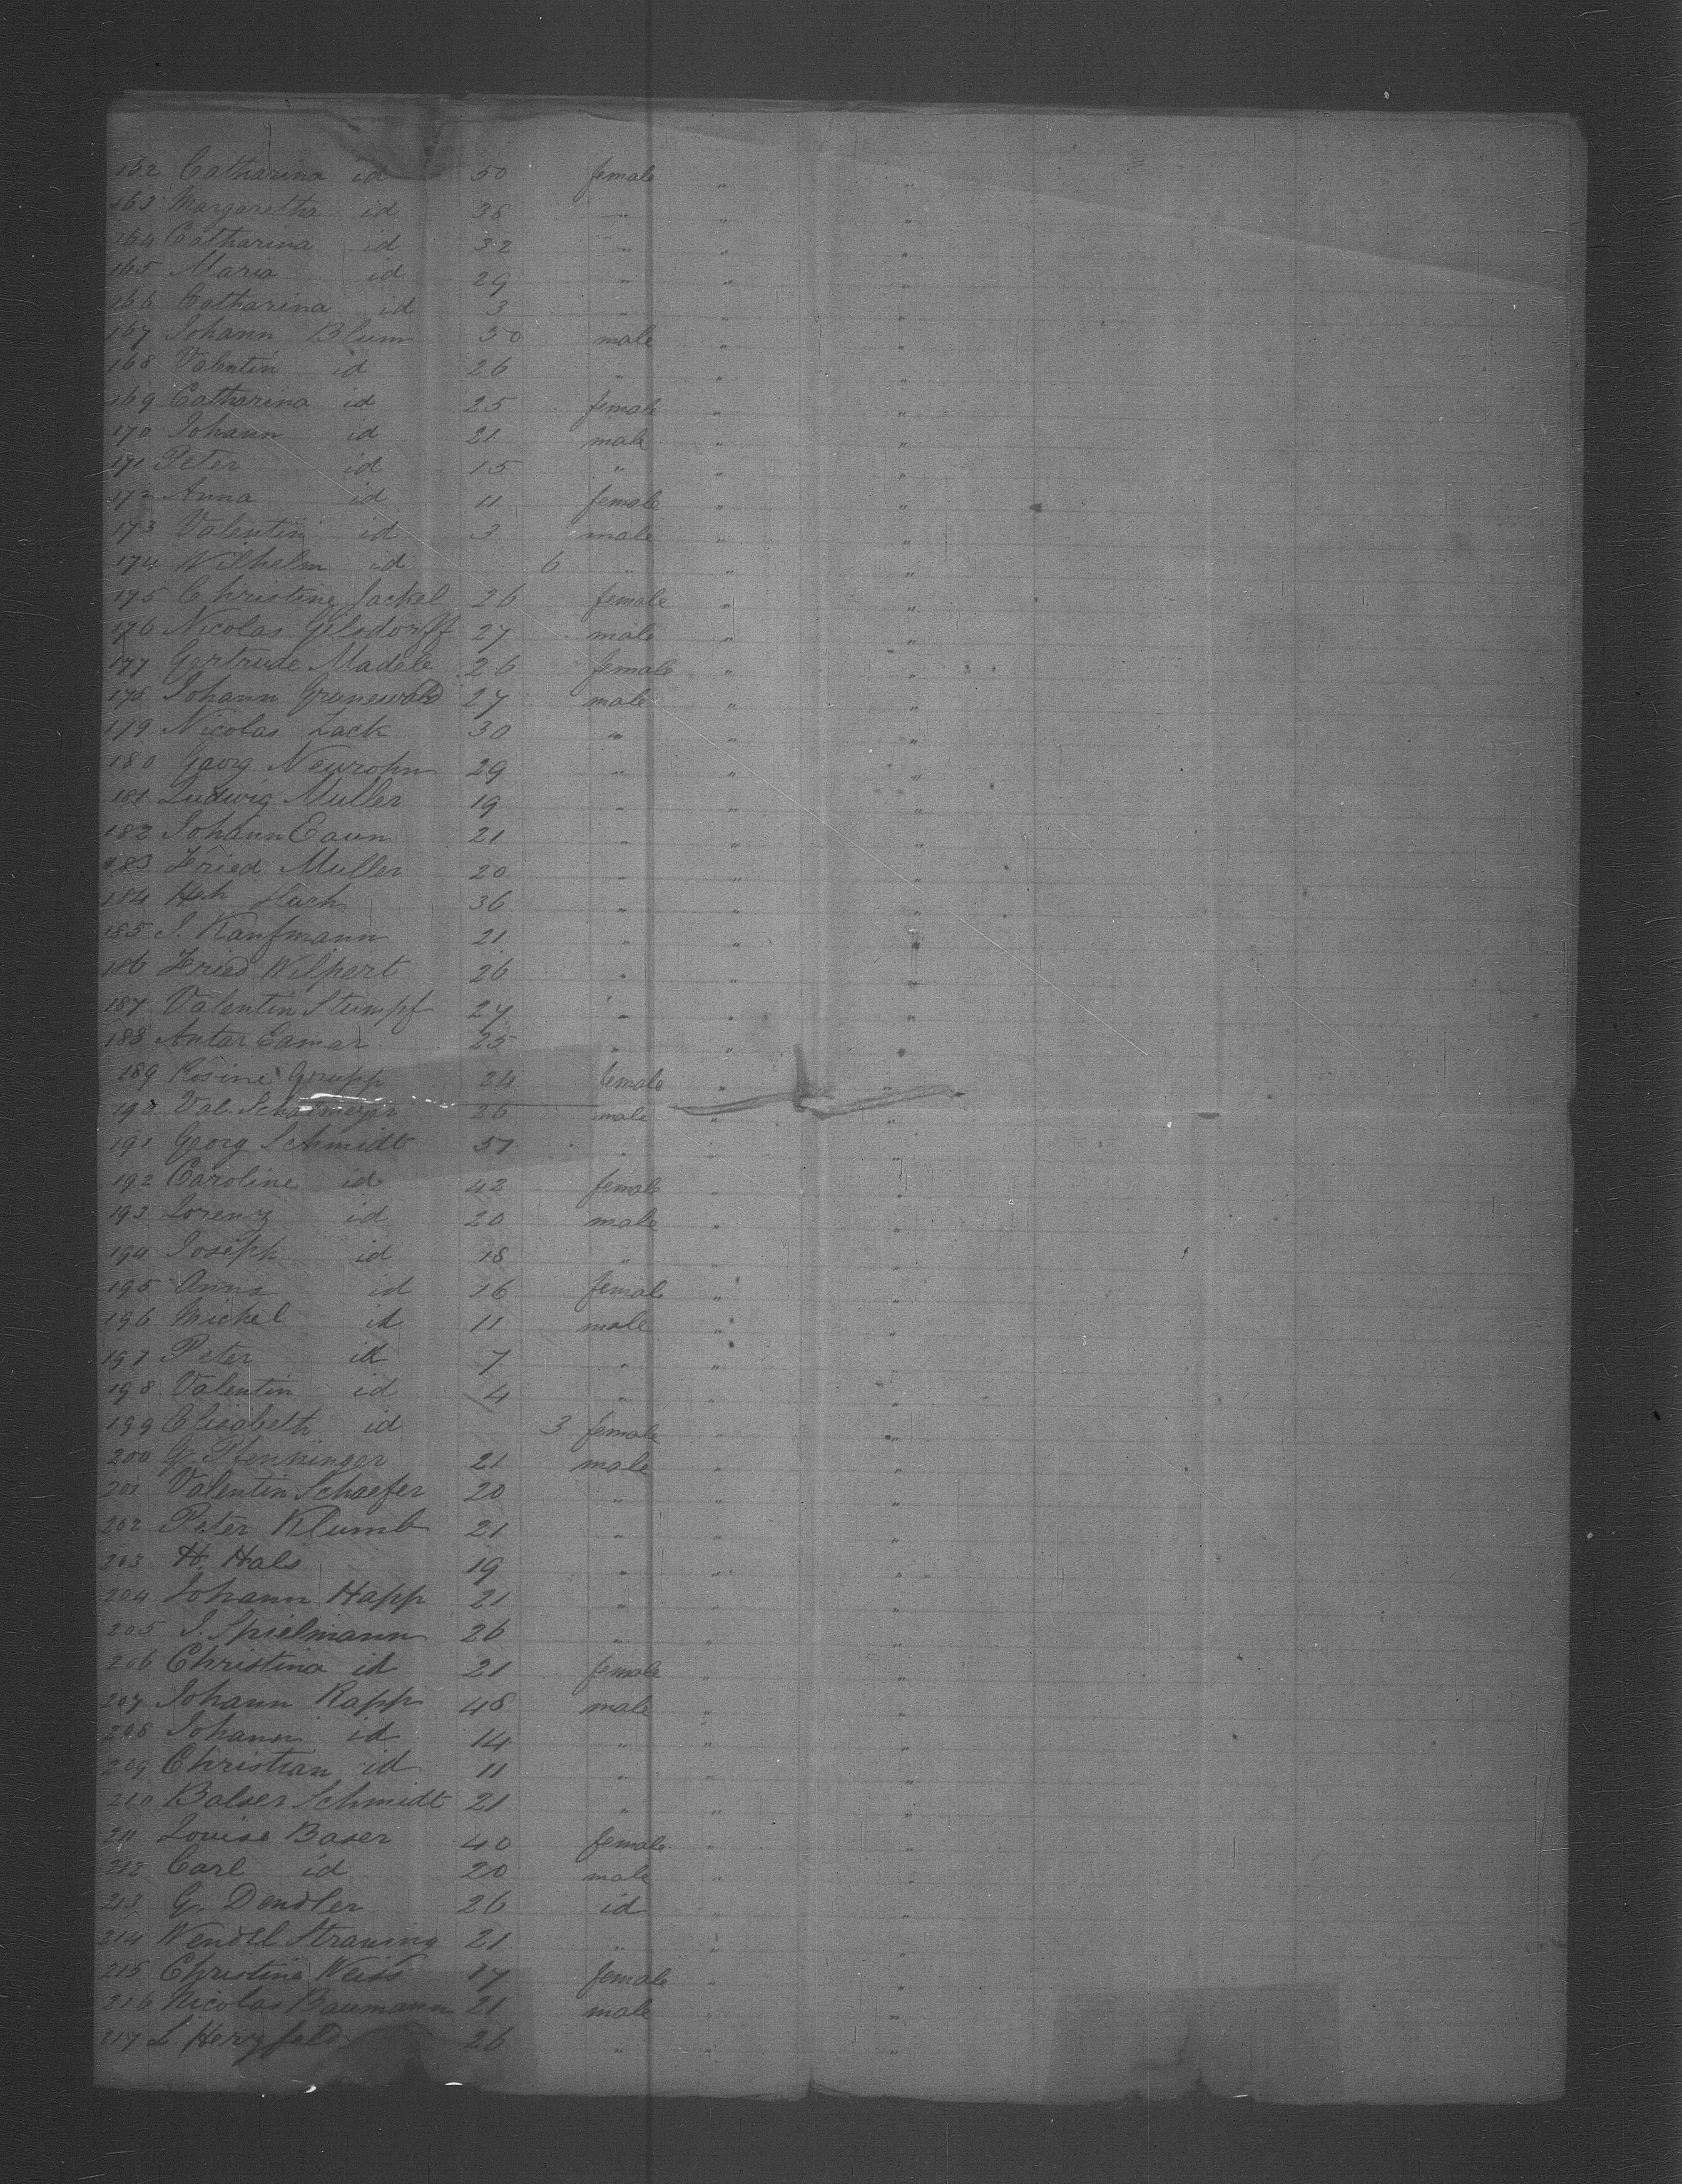 162 Catharina id 50 female " "
163 Margaretha id 38 " " "
164 Catharina id 32 " " "
165 Maria id 29 " " "
166 Catharina id 3 " " "
167 Johann Blum 50 male " "
168 Valentin id 26 " " "
169 Catharina id 25 female " "
170 Johann id 21 male " "
171 Peter id 15 " " "
172 Anna id 11 female " "
173 Valentin id 3 male " "
174 Wilhelm id 6 " " "
175 Christine Jackel 26 female " "
176 Nicolas Gilsdorff 27 male " "
177 Gertrude Madele 26 female " "
178 Johann Grunewald 27 male " "
179 Nicolas Zack 30 " " "
180 Georg Neurohn 29 " " "
181 Ludwig Muller 19 " " "
182 Johann Eaun 21 " " "
183 Fried Muller 20 " " "
184 Hch 36 " " "
185 J. Kaufmann 21 " " "
186 Fried Wilpert 26 " " "
187 Valentin Stumpf 27 " " "
188 25 " " "
189 Rosine Grupp 24 female " "
190 Val. 36 male " "
191 Georg Schmidt 57 " " "
192 Caroline id 42 female " "
193 Lorenz id 20 male " "
194 Joseph id 18 " " "
195 Anna id 16 female " "
196 Michel id 11 male " "
197 Peter id 7 " " "
198 Valentin id 4 " " "
199 Elisabeth id 3 female " "
200 G. Pfenninger 21 male " "
201 Valentin Schaefer 20 " " "
202 Peter Klumb 21 " " "
203 H. Hals 19 " " "
204 Johann Happ 21 " " "
205 J. Spielmann 26 " " "
206 Christina id 21 female " "
207 Johann Rapp 48 male " "
208 Johann id 14 " " "
209 Christian id 11 " " "
210 Balser Schmidt 21 " " "
211 Louise Baser 40 female " "
212 Carl id 20 male " "
213 G. Dendler 26 id " "
214 Wendel Strauing 21 " " "
215 Christine Weiss 17 female " "
216 Nicolas Baumann 21 male " "
217 L. Herzfeld 26 " " "